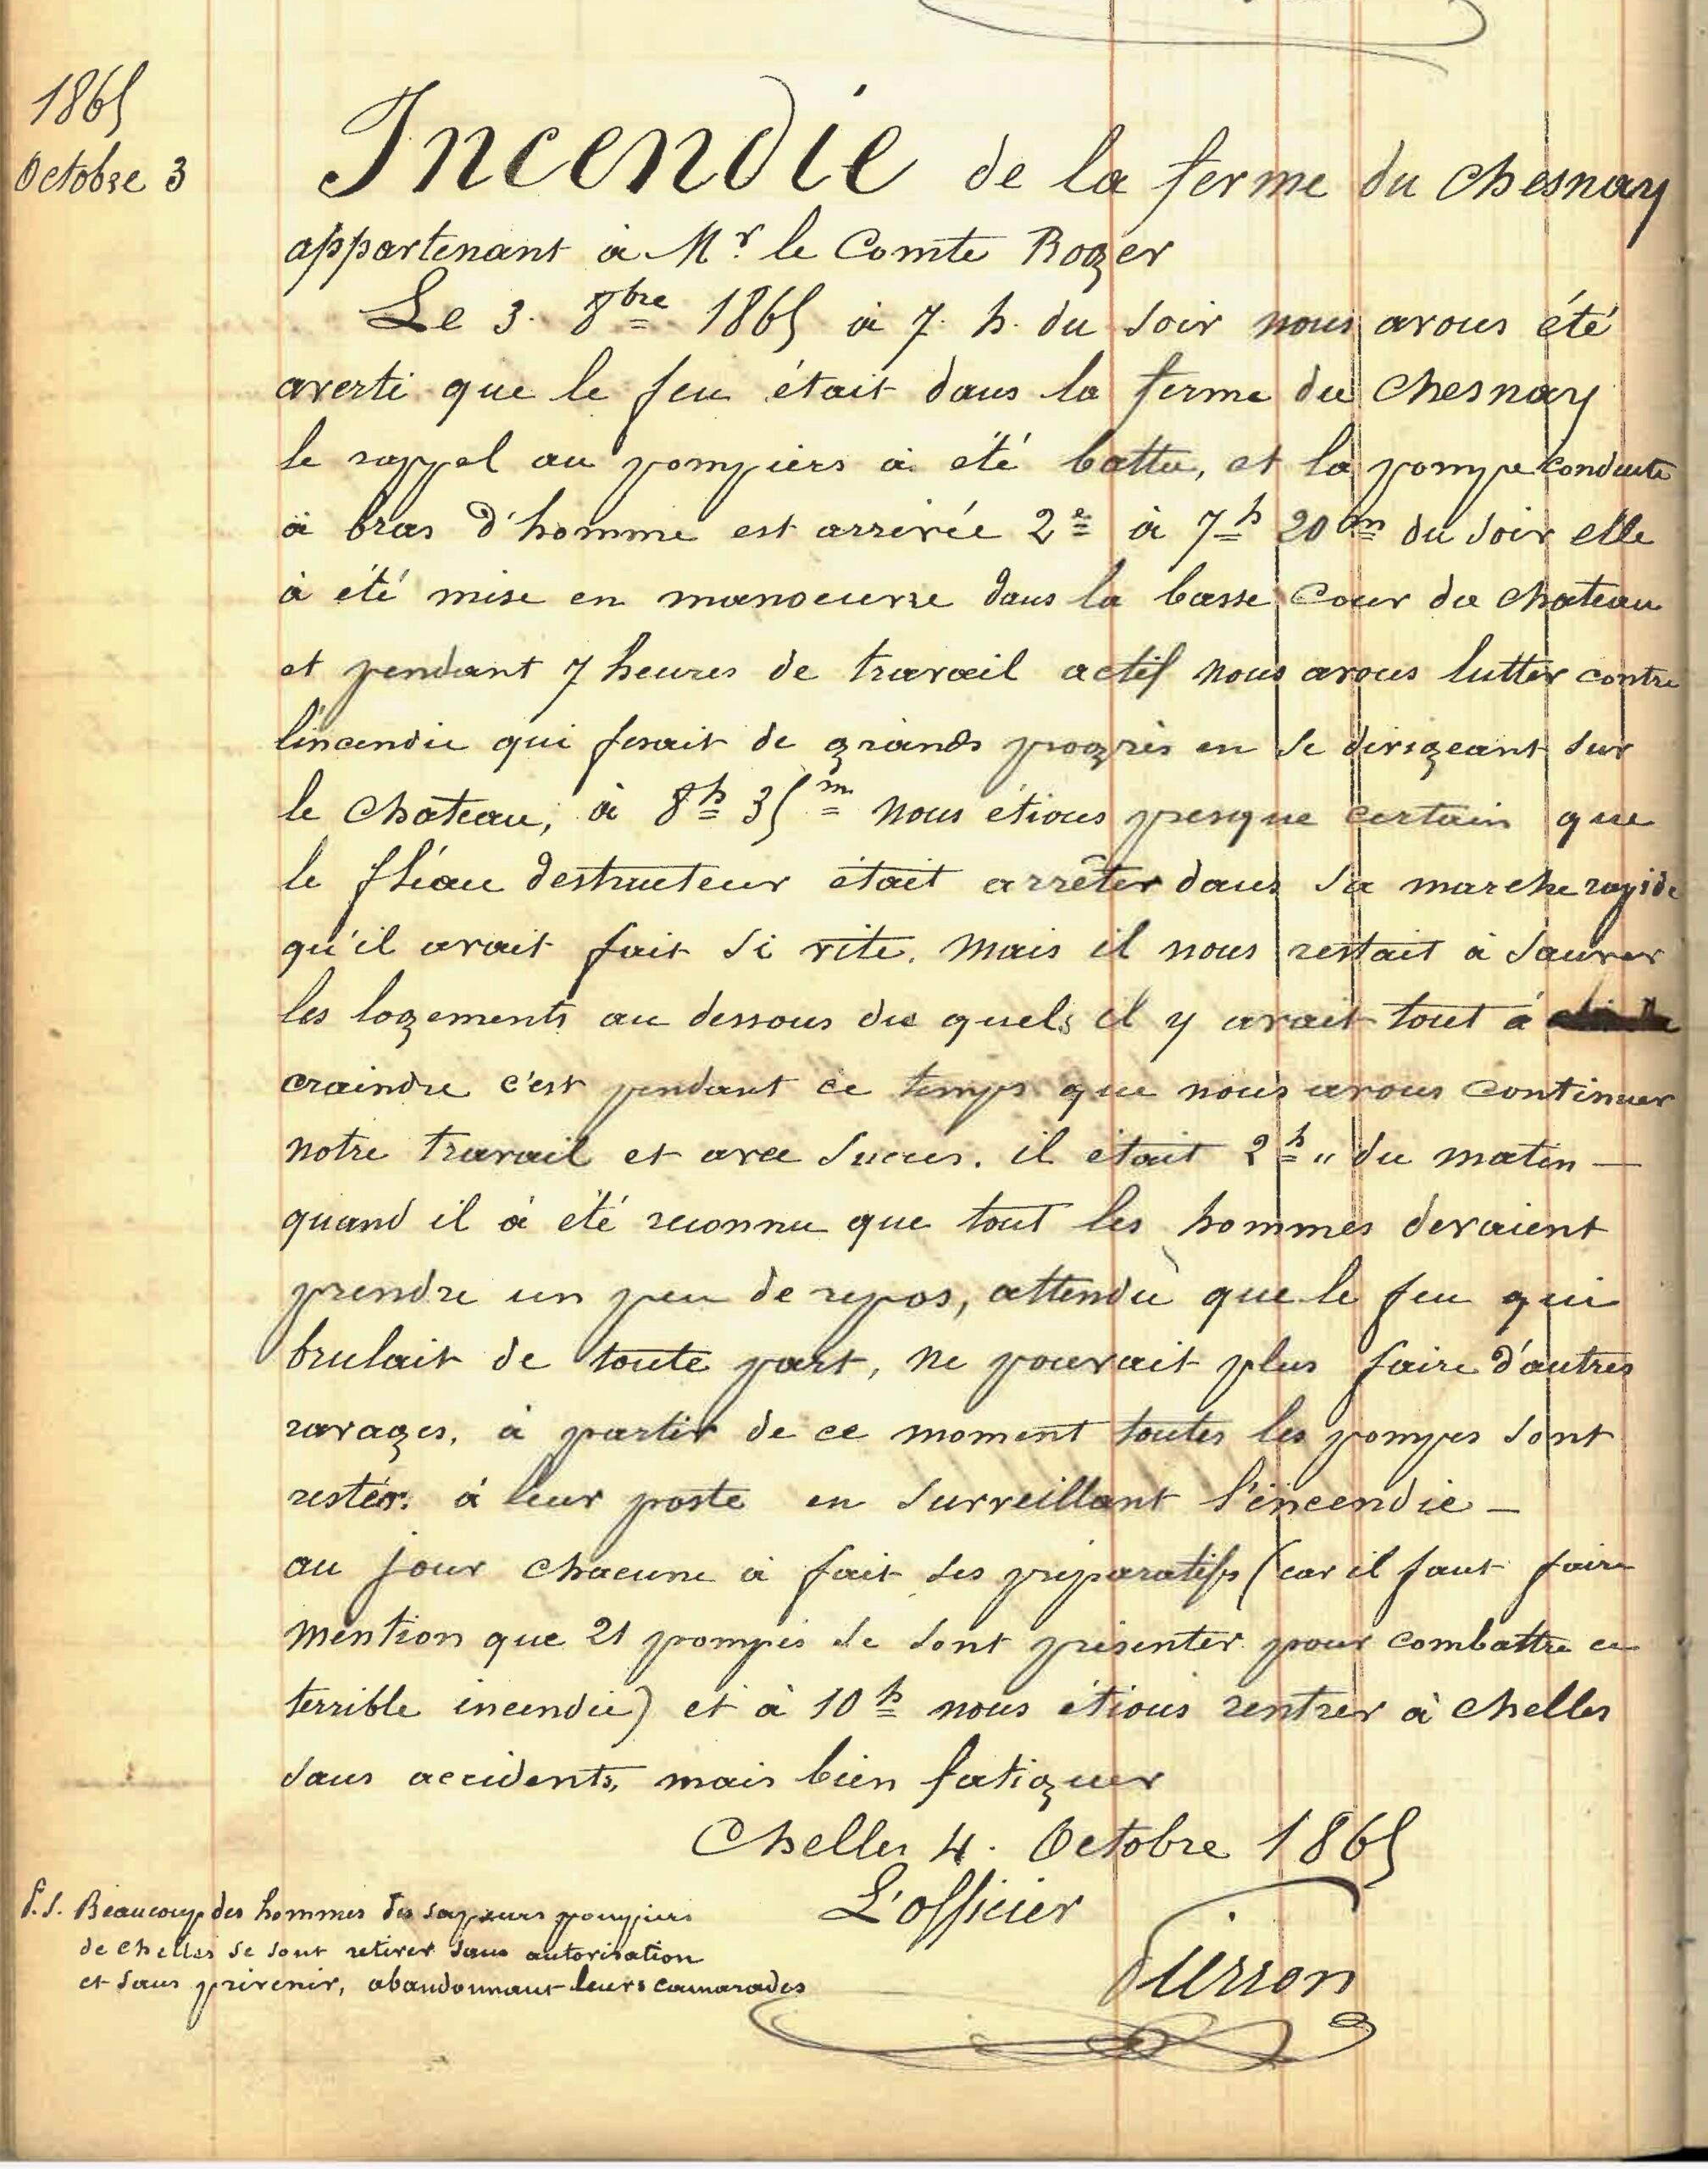 1865
Octobre 3
Incendie de la ferme du Chesnay
appartenant à Mr. le Comte Roger
Le 3. 8bre 1865 à 7. h. du soir nous avons été
averti que le feu était dans la ferme du Chesnay
le rappel au pompiers à été battu, et la pompe conduite
à bras d'homme est arrivée 2e à 7h 20m du soir elle
à été mise en manoeuvre dans la basse Cour du Chateau
et pendant 7 heures de travail actif nous avons lutter contre
l'incendie qui fesait de grands progrès en se dirigeant sur
le Château, à 8h 35m nous étions presque certain que
le fléau destructeur était arrêter dans sa marche rapide
qu'il avait fait si vite. Mais il nous restait à sauver
les logements au dessous du quels il y avait tout à
craindre c'est pendant ce temps que nous avons continuer
notre travail et avec succes. il était 2h " du matin —
quand il à été reconnu que tout les hommes devaient
prendre un peu de repos, attendu que le feu qui
brulait de toute part, ne pouvait plus faire d'autres
ravages, à partir de ce moment toutes les pompes sont
rester à leur poste en surveillant l'incendie —
au jour chacune à fait ses préparatifs (car il faut faire
mention que 21 pompes se sont présenter pour combattre ce
terrible incendie) et à 10h nous étions rentrer à Chelles
sans accidents, mais bien fatiguer
Chelles 4. Octobre 1865
L'officier
Pierson
P.S. Beaucoup des hommes des sapeurs pompiers
de Chelles se sont retirer sans autorisation
et sans prévenir, abandonnant leurs camarades